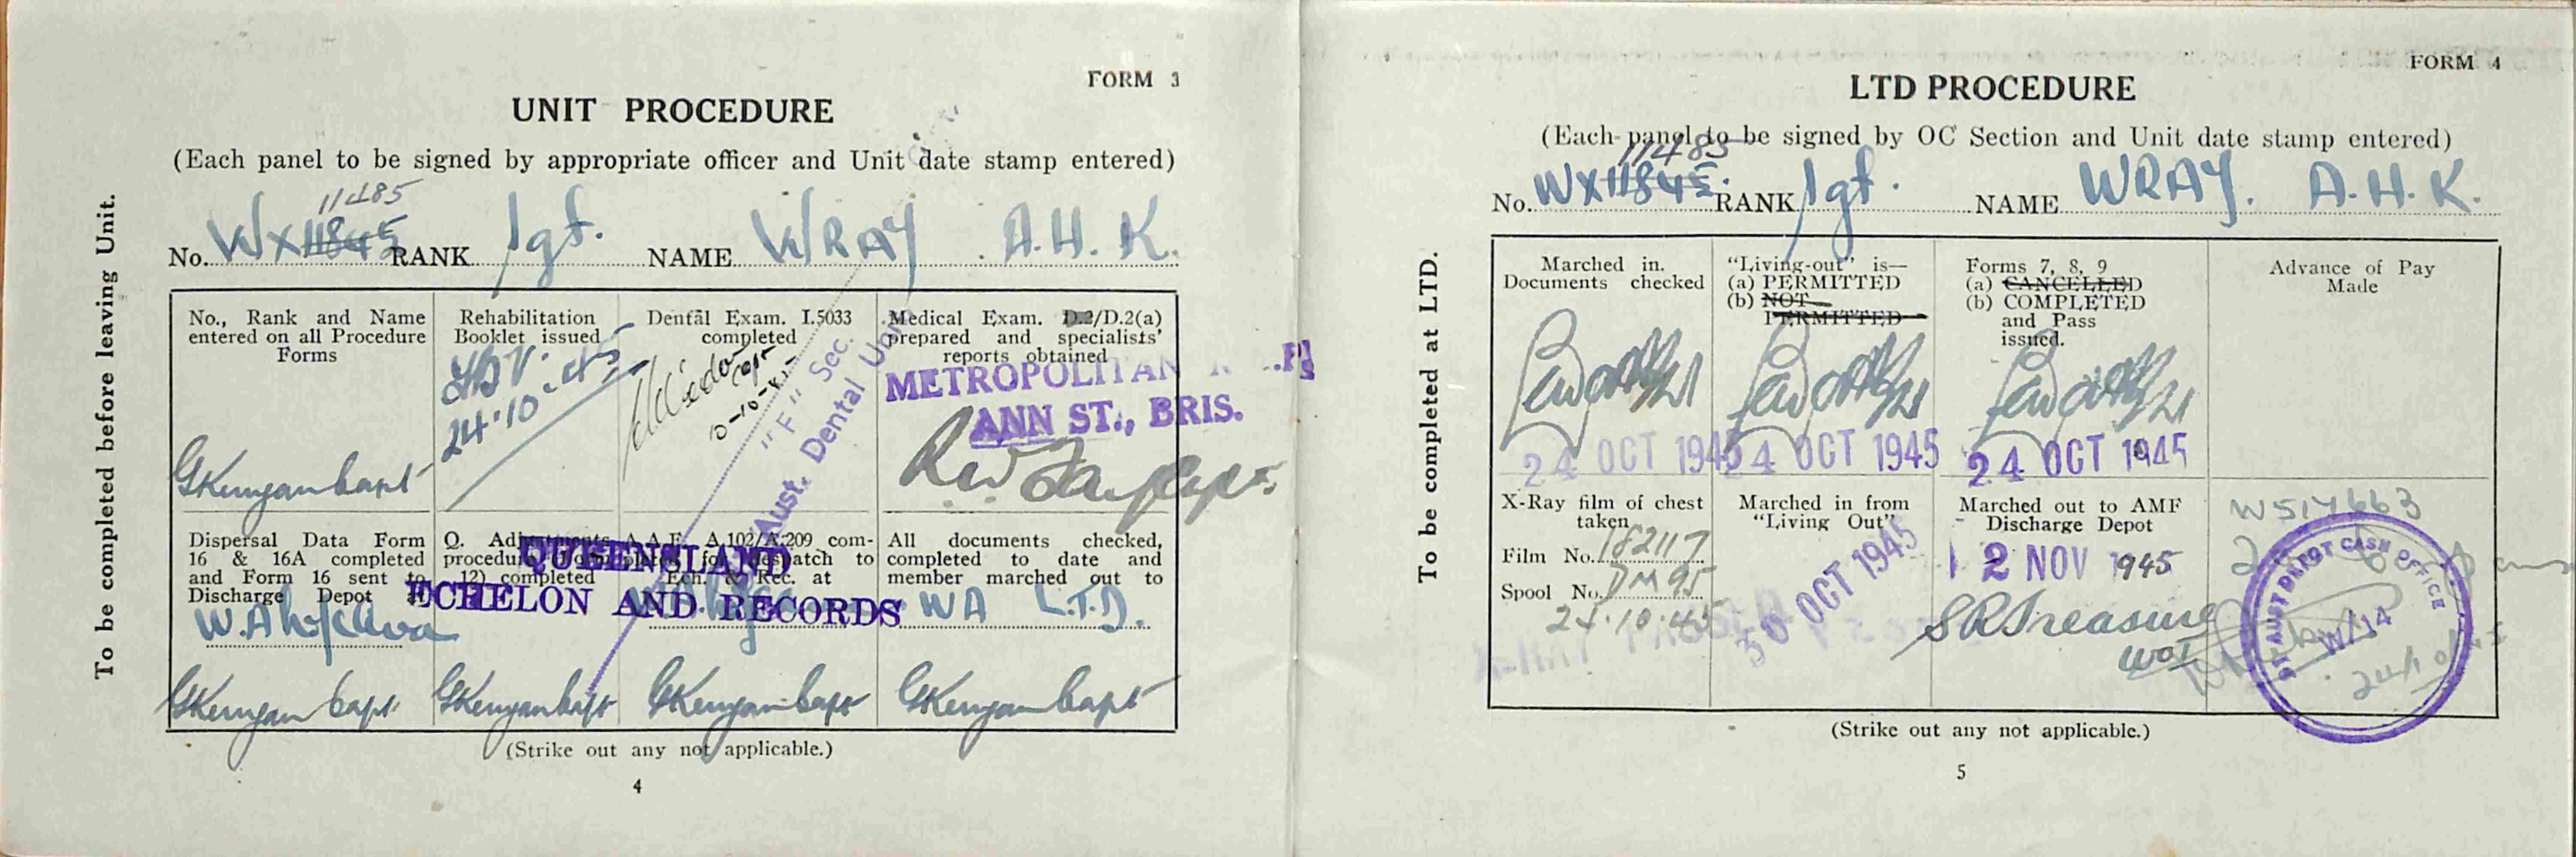 FORM 3
UNIT PROCEDURE
(Each panel to be signed by appropriate officer and Unit date stamp entered)
11485
No. WX11845 RANK Sgt. NAME WRAY A.H.K.
To be completed before leaving Unit.
No., Rank and Name
entered on all Procedure
Forms
GKenyon Capt
Rehabilitation
Booklet issued
24.10.45
Dental Exam. I.5033
completed
Capt
"F" Sec.
Aust. Dental Unit
Medical Exam. D.2/D.2(a)
prepared and specialists'
reports obtained
METROPOLITAN
ANN ST., BRIS.
Dispersal Data Form
16 & 16A completed
and Form 16 sent to
Discharge Depot at
GKenyon Capt
Q. Adjustments
procedure
12) completed
GKenyon Capt
A.A.F. A.102/A.209 com-
for despatch to
Ech. & Rec. at
GKenyon Capt
QUEENSLAND
ECHELON AND RECORDS
All documents checked,
completed to date and
member marched out to
WA L.T.D.
GKenyon Capt
(Strike out any not applicable.)
4
FORM 4
LTD PROCEDURE
(Each panel to be signed by OC Section and Unit date stamp entered)
11485
No. WX11845. RANK Sgt. NAME WRAY. A.H.K.
To be completed at LTD.
Marched in.
Documents checked
24 OCT 1945
"Living-out" is—
(a) PERMITTED
(b) NOT
PERMITTED
24 OCT 1945
Forms 7, 8, 9
(a) CANCELLED
(b) COMPLETED
and Pass
issued.
24 OCT 1945
Advance of Pay
Made
X-Ray film of chest
taken
Film No. 182117
Spool No. DM95
24.10.45
Marched in from
"Living Out"
30 OCT 1945
Marched out to AMF
Discharge Depot
2 NOV 1945
SRTreasure
WOI
W517663
DIST CASH OFFICE
W/14
(Strike out any not applicable.)
5